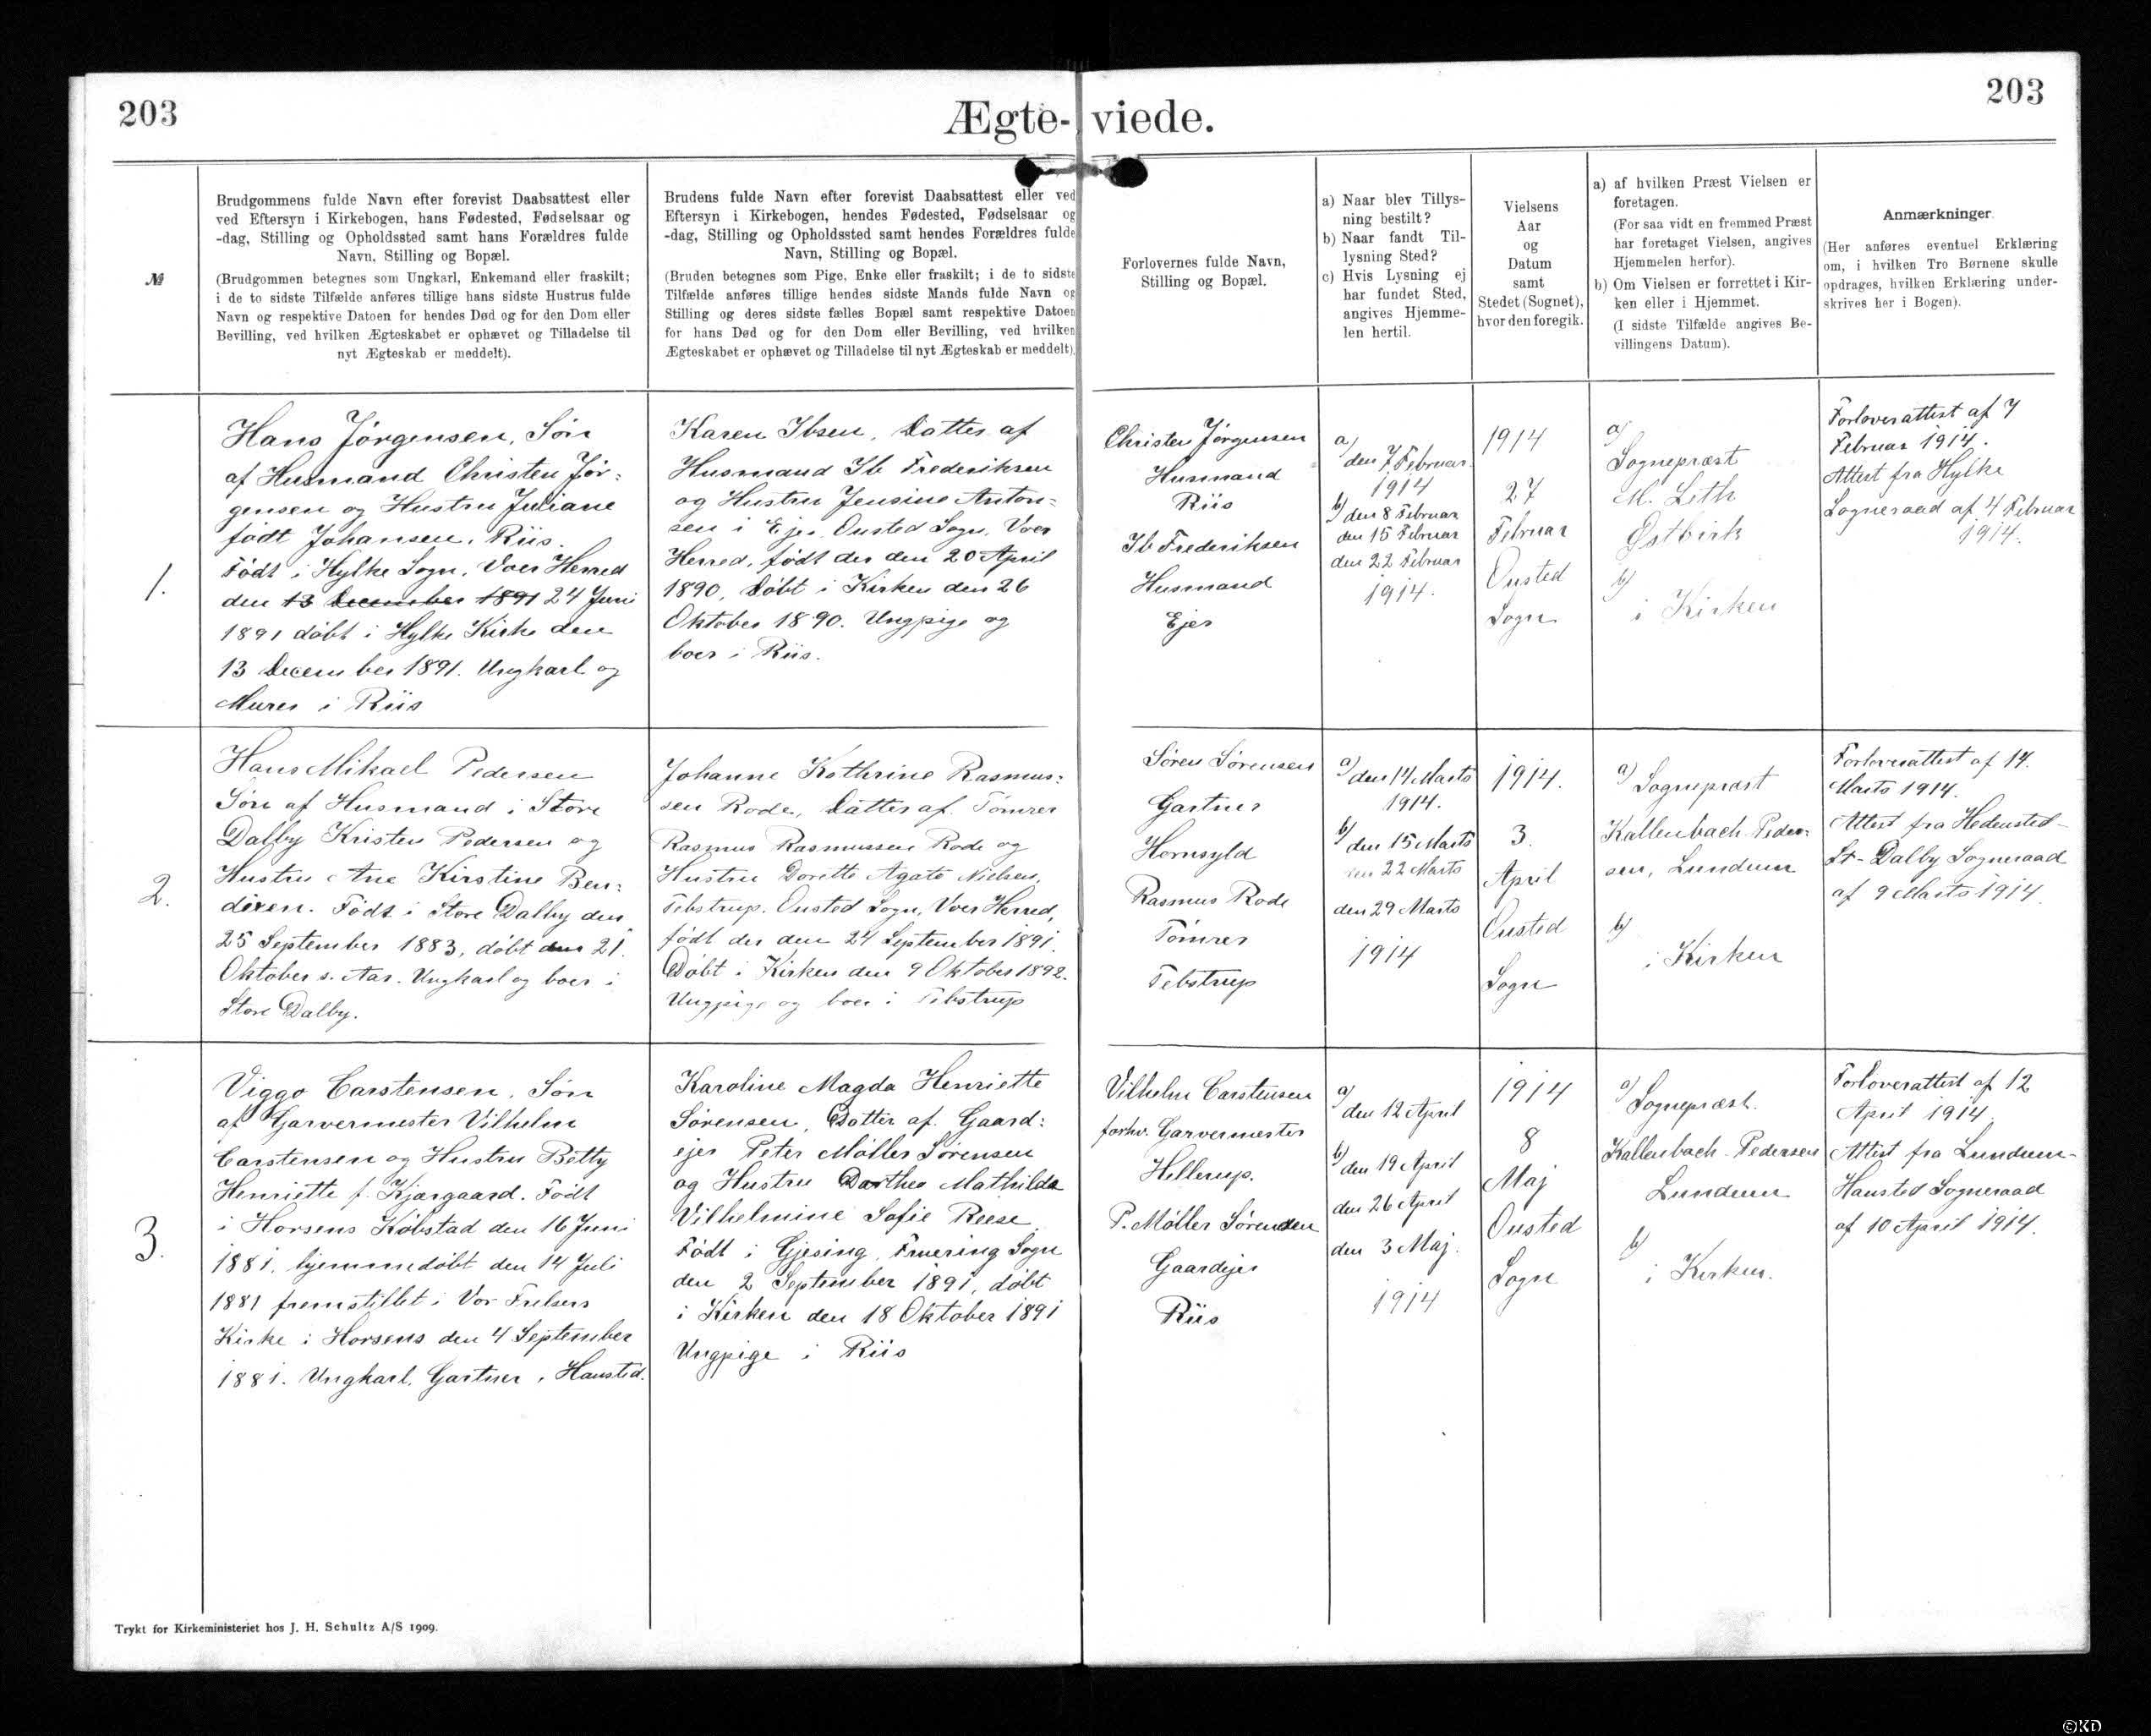 203
Ægte-viede.
203
№
Brudgommens fulde Navn efter forevist Daabsattest eller
ved Eftersyn i Kirkebogen, hans Fødested, Fødselsaar og
-dag, Stilling og Opholdssted samt hans Forældres fulde
Navn, Stilling og Bopæl.
(Brudgommen betegnes som Ungkarl, Enkemand eller fraskilt;
i de to sidste Tilfælde anføres tillige hans sidste Hustrus fulde
Navn og respektive Datoen for hendes Død og for den Dom eller
Bevilling, ved hvilken Ægteskabet er ophævet og Tilladelse til
nyt Ægteskab er meddelt).
Brudens fulde Navn efter forevist Daabsattest eller ved
Eftersyn i Kirkebogen, hendes Fødested, Fødselsaar og
-dag, Stilling og Opholdssted samt hendes Forældres fulde
Navn, Stilling og Bopæl.
(Bruden betegnes som Pige, Enke eller fraskilt; i de to sidste
Tilfælde anføres tillige hendes sidste Mands fulde Navn og
Stilling og deres sidste fælles Bopæl samt respektive Datoen
for hans Død og for den Dom eller Bevilling, ved hvilken
Ægteskabet er ophævet og Tilladelse til nyt Ægteskab er meddelt).
Forlovernes fulde Navn,
Stilling og Bopæl.
a) Naar blev Tillys-
ning bestilt?
b) Naar fandt Til-
lysning Sted?
c) Hvis Lysning ej
har fundet Sted,
angives Hjemme-
len hertil.
Vielsens
Aar
og
Datum
samt
Stedet (Sognet),
hvor den foregik.
a) af hvilken Præst Vielsen er
foretagen.
(For saa vidt en fremmed Præst
har foretaget Vielsen, angives
Hjemmelen herfor).
b) Om Vielsen er forrettet i Kir-
ken eller i Hjemmet.
(I sidste Tilfælde angives Be-
villingens Datum).
Anmærkninger.
(Her anføres eventuel Erklæring
om, i hvilken Tro Børnene skulle
opdrages, hvilken Erklæring under-
skrives her i Bogen).
1.
Hans Jørgensen, Søn
af Husmand Christen Jør-
gensen og Hustru Juliane
født Johansen, Riis.
Født i Hylke Sogn, Voer Herred
den 13 December 1891 24 Juni
1891 døbt i Hylke Kirke den
13 December 1891. Ungkarl og
Murer i Riis
Karen Ibsen, Datter af
Husmand Ib Frederiksen
og Hustru Jensine Anton-
sen i Ejer, Ousted Sogn, Voer
Herred, født der den 20 April
1890, Døbt i Kirken den 26
Oktober 1890. Ungpige og
boer i Riis.
Christen Jørgensen
Husmand
Riis
Ib Frederiksen
Husmand
Ejer
a)
den 7 Februar
1914
b)
den 8 Februar
den 15 Februar
den 22 Februar
1914.
1914
27
Februar
Ousted
Sogn
a)
Sognepræst
M. Leth
Østbirk
b)
i Kirken
Forloverattest af 7
Februar 1914.
Attest fra Hylke
Sogneraad af 4 Februar
1914.
2.
Hans Mikael Pedersen
Søn af Husmand i Store
Dalby Kristen Pedersen og
Hustru Ane Kirstine Ben-
dixen. Født i Store Dalby den
25 September 1883, døbt den 21.
Oktober s. Aar. Ungkarl og boer i
Store Dalby.
Johanne Kathrine Rasmus-
sen Rode, Datter af Tømrer
Rasmus Rasmussen Rode og
Hustru Dorette Agate Nielsen,
Tebstrup, Ousted Sogn, Voer Herred,
født der den 24 September 1891.
Døbt i Kirken den 9 Oktober 1892.
Ungpige og boer i Tebstrup
Søren Sørensen
Gartner
Hornsyld
Rasmus Rode
Tømrer
Tebstrup
a)
den 14 Marts
1914.
b)
den 15 Marts
den 22 Marts
den 29 Marts
1914
1914.
3.
April
Ousted
Sogn
a) Sognepræst
Kallenbach-Peder-
sen, Lundum
b)
i Kirken
Forloverattest af 14.
Marts 1914.
Attest fra Hedensted-
St-Dalby Sogneraad
af 9 Marts 1914.
3.
Viggo Carstensen, Søn
af Garvermester Vilhelm
Carstensen og Hustru Betty
Henriette f. Kjærgaard. Født
i Horsens Købstad den 16 Juni
1881, hjemmedøbt den 14 Juli
1881 fremstillet i Vor Frelsers
Kirke i Horsens den 4 September
1881. Ungkarl, Gartner, Hansted.
Karoline Magda Henriette
Sørensen, Datter af Gaard-
ejer Peter Møller Sørensen
og Hustru Dorthea Mathilda
Vilhelmine Sofie Reese,
Født i Gjesing, Fruering Sogn
den 2 September 1891, døbt
i Kirken den 18 Oktober 1891
Ungpige i Riis
Vilhelm Carstensen
forhv. Garvermester
Hellerup.
P. Møller Sørensen
Gaardejer
Riis
a)
den 12 April
b)
den 19 April
den 26 April
den 3 Maj.
1914
1914
8
Maj
Ousted
Sogn
a) Sognepræst.
Kallenbach-Pedersen
Lundum
b)
i Kirken.
Forloverattest af 12
April 1914.
Attest fra Lundum-
Hansted Sogneraad
af 10 April 1914.
Trykt for Kirkeministeriet hos J. H. Schultz A/S 1909.
©KD